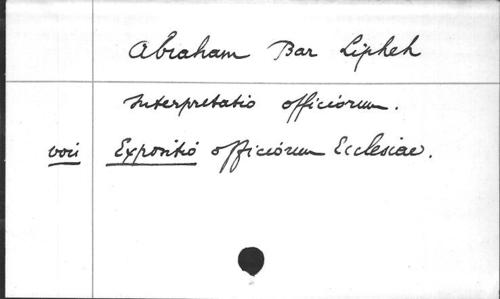 Abraham Bar Lipheh
Interpretatio officiorum.
voir Expositio officiorum Ecclesiae.